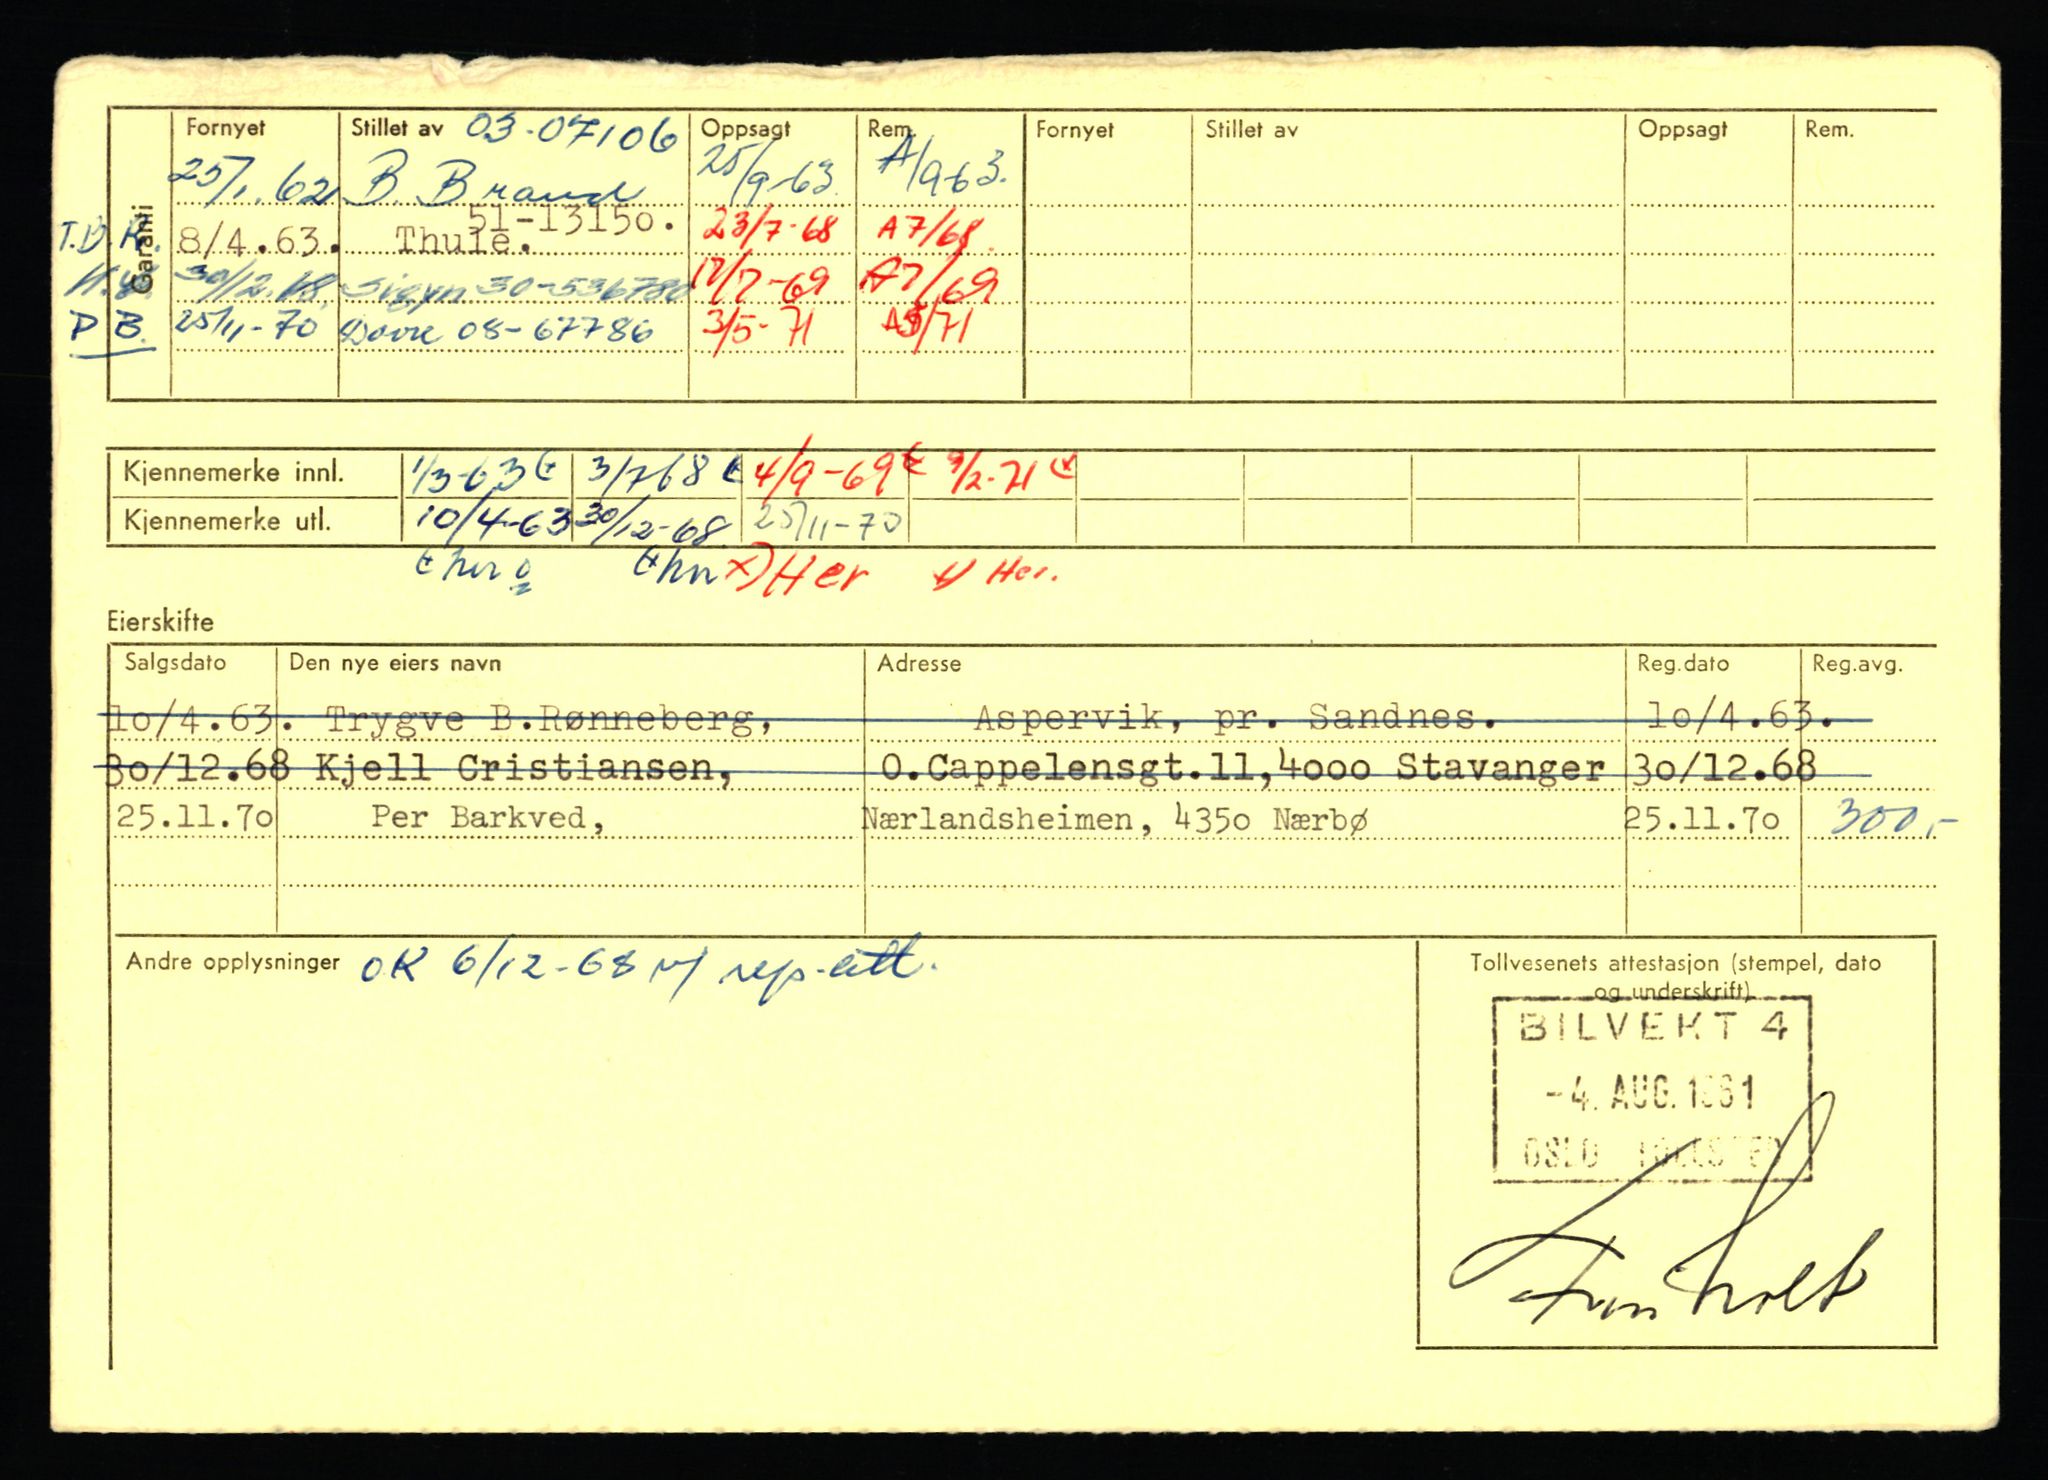 Garanti
Fornyet Stillet av 03-07106 Oppsagt Rem. Fornyet Stillet av Oppsagt Rem.
25/1.62 B. Brand 25/9-63 A/9-63.
51-13150.
8/4.63. Thule. 23/7-68 A7/68
30/12.68 Sigyn 30-536780 17/7-69 A7/69
P B. 25/11-70 Dovre 08-67786 3/5-71 A5/71
Kjennemerke innl. 1/3-63 3/7 68 4/9-69 9/2-71
Kjennemerke utl. 10/4-63 30/12-68 25/11-70
x) Her Her.
Eierskifte
Salgsdato Den nye eiers navn Adresse Reg.dato Reg.avg.
10/4.63. Trygve B.Rønneberg, Aspervik, pr. Sandnes. 10/4.63.
30/12.68 Kjell Cristiansen, O.Cappelensgt.11,4000 Stavanger 30/12.68
25.11.70 Per Barkved, Nærlandsheimen, 4350 Nærbø 25.11.70 300,-
Andre opplysninger OK 6/12-68 m/ rep.att.
Tollvesenets attestasjon (stempel, dato
og underskrift)
BILVEKT 4
-4. AUG. 1961
OSLO